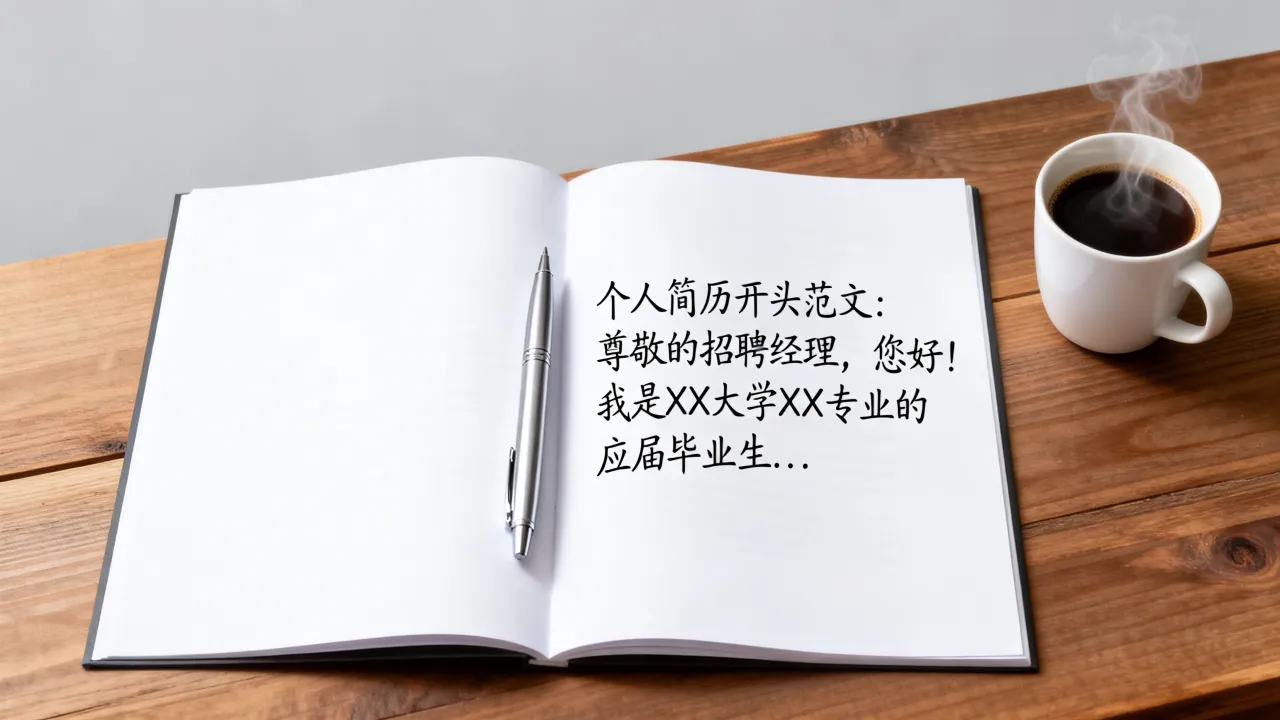 个人简历开头范文：
尊敬的招聘经理，您好！
我是XX大学XX专业的
应届毕业生...